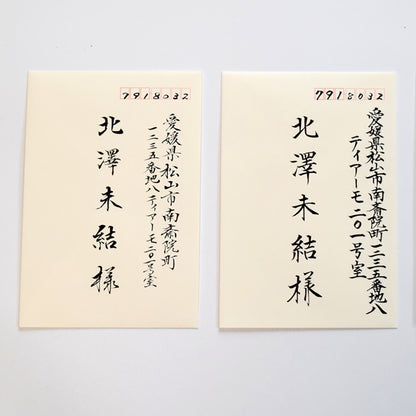 7918032
愛媛県松山市南斎院町
一二三五番地八ティアーモ二〇一号室
北澤未結様
7918032
愛媛県松山市南斎院町一二三五番地八
ティアーモ二〇一号室
北澤未結様